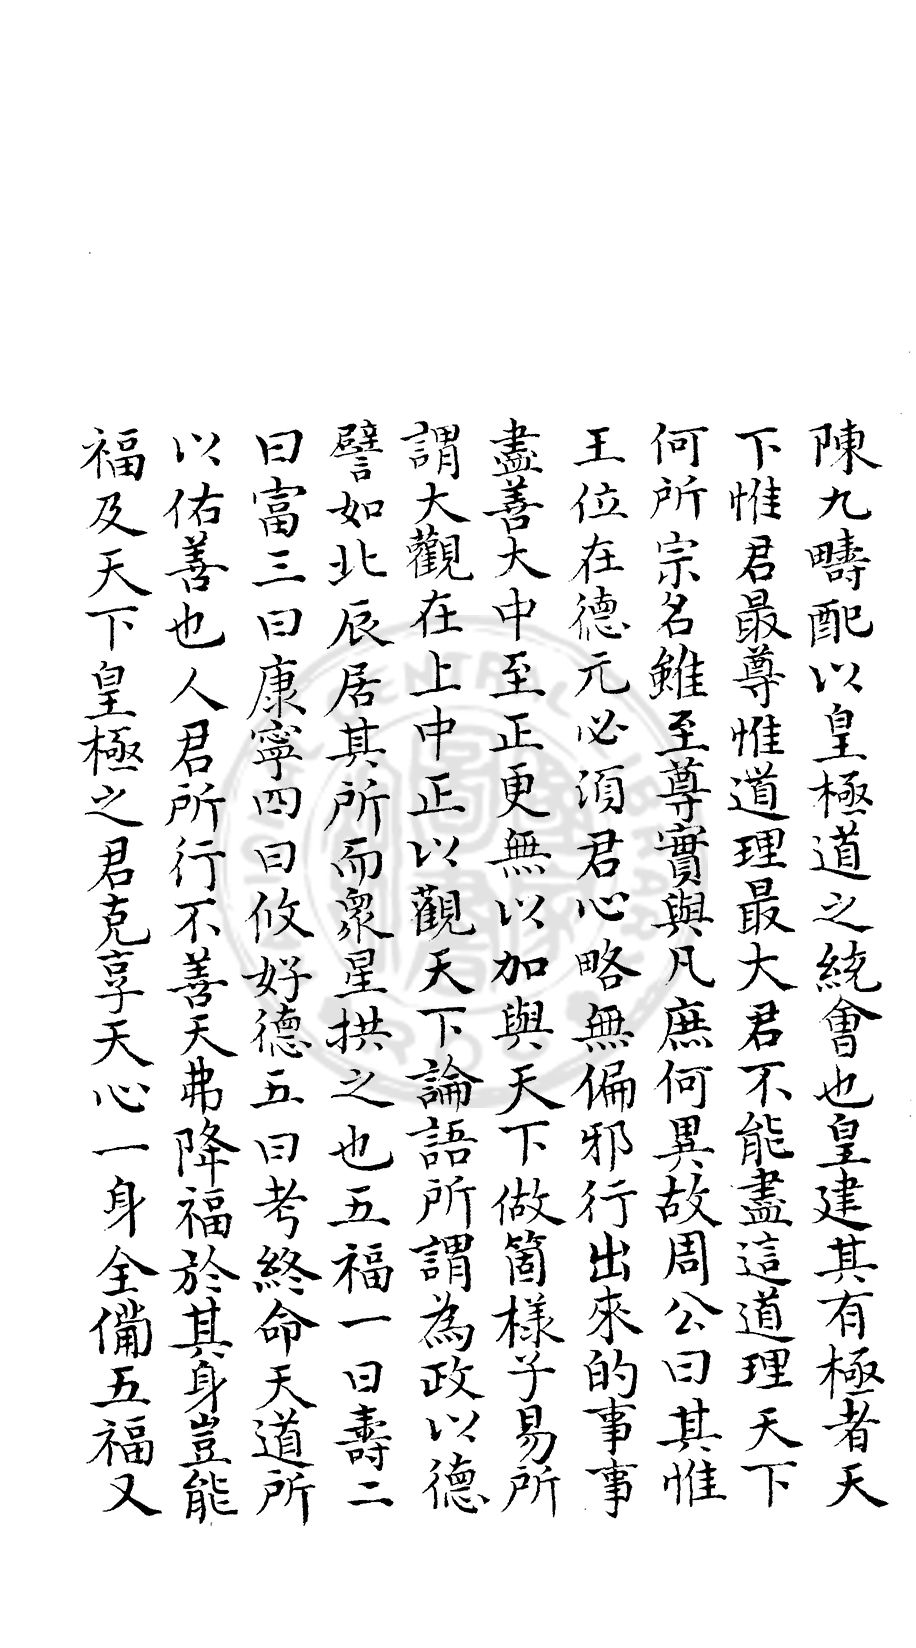 陳九疇配以皇極道之統會也皇建其有極者天
下惟君最尊惟道理最大君不能盡這道理天下
何所宗名雖至尊實與凡庶何異故周公曰其惟
王位在德元必須君心略無偏邪行出來的事事
盡善大中至正更無以加與天下做箇樣子易所
謂大觀在上中正以觀天下論語所謂為政以德
譬如北辰居其所而衆星拱之也五福一曰壽二
曰富三曰康寧四曰攸好德五曰考終命天道所
以佑善也人君所行不善天弗降福於其身豈能
福及天下皇極之君克享天心一身全備五福又